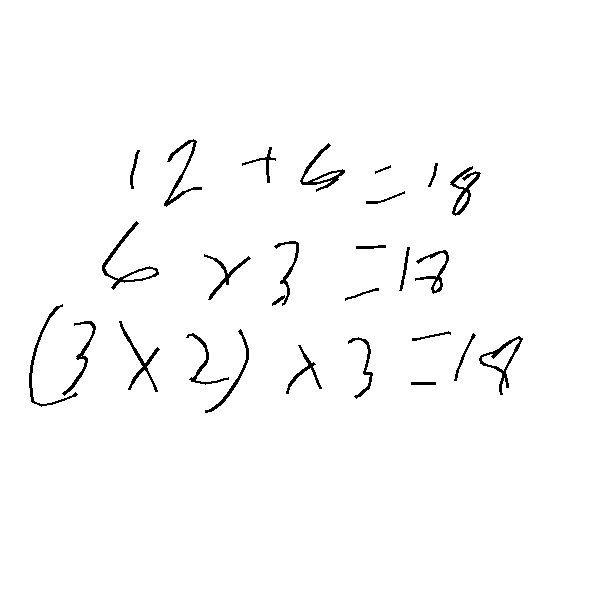 12 + 6 = 18
6 x 3 = 18
(3 x 2) x 3 = 18